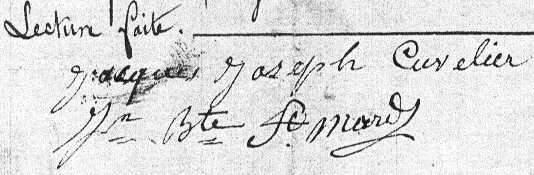 Lecture faite.
Jacques Joseph Cuvelier
Jn Bte St mard